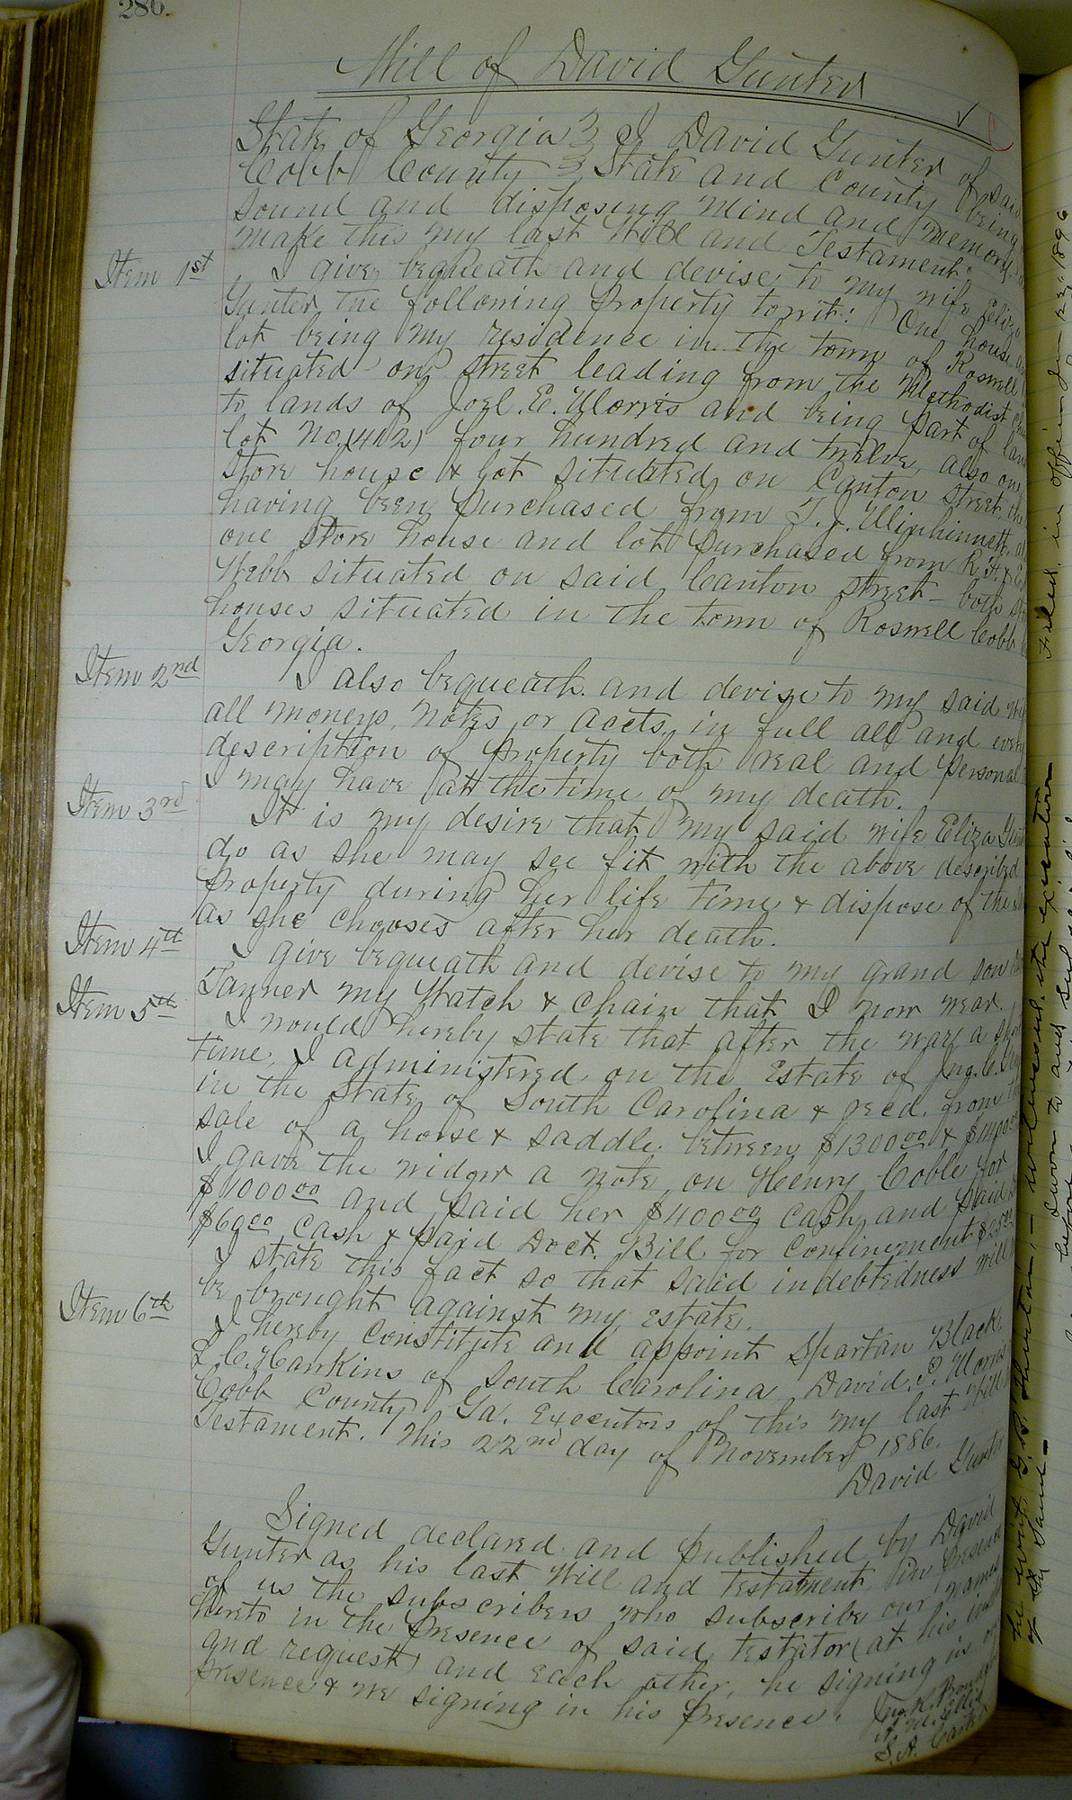 286.
Will of David Gunter
State of Georgia } I David Gunter of said
Cobb County } State and County being
sound and disposing mind and memory
make this my last Will and Testament.
Item 1st I give, bequeath and devise to my wife Eliza
Gunter the following property towit: One house
lot being my residence in the town of Roswell
situated on street leading from the Methodist
to lands of Joel. E. Morris and being part of land
lot No. (412) four hundred and twelve, also one
store house & lot situated on Canton Street, the
having been purchased from T. J. Winhinnett,
one store house and lot purchased from R. H. &
Webb situated on said Canton Street - both
houses situated in the town of Roswell Cobb
Georgia.
Item 2nd I also bequeath and devise to my said
all moneys, notes, or accts, in full all and every
description of property both real and personal
I may have at the time of my death.
Item 3rd It is my desire that my said wife Eliza
do as she may see fit with the above described
property during her life time & dispose of the
as she chooses after her death.
Item 4th I give bequeath and devise to my grand son
Tanner my Watch & Chain that I now wear.
Item 5th I would hereby state that after the war a
time, I administered on the Estate of Jno. C.
in the State of South Carolina & recd. from
sale of a horse & saddle, between $1300.00 &
I gave the widow a note on Henry Coble for
$1000.00 and paid her $400.00 cash, and paid
$60.00 cash & paid Doct. Bill for Confinement $25.00
I state this fact so that said indebtedness will
be brought against my estate.
Item 6th I hereby constitute and appoint Spartan Black
L. C. Hawkins of South Carolina David. P. Morris
Cobb County Ga. Executors of this my last Will
Testament. This 22nd day of November 1886.
David
Signed declared and published by David
Gunter as his last Will and testament in presence
of us the subscribers who subscribe our names
hereto in the presence of said testator (at his
and request) and each other, he signing in
presence & we signing in his presence.
Jno.
W. M. Ellis
S. A.
Filed in office Jan 1896
sworn to and
the executors
of the same -